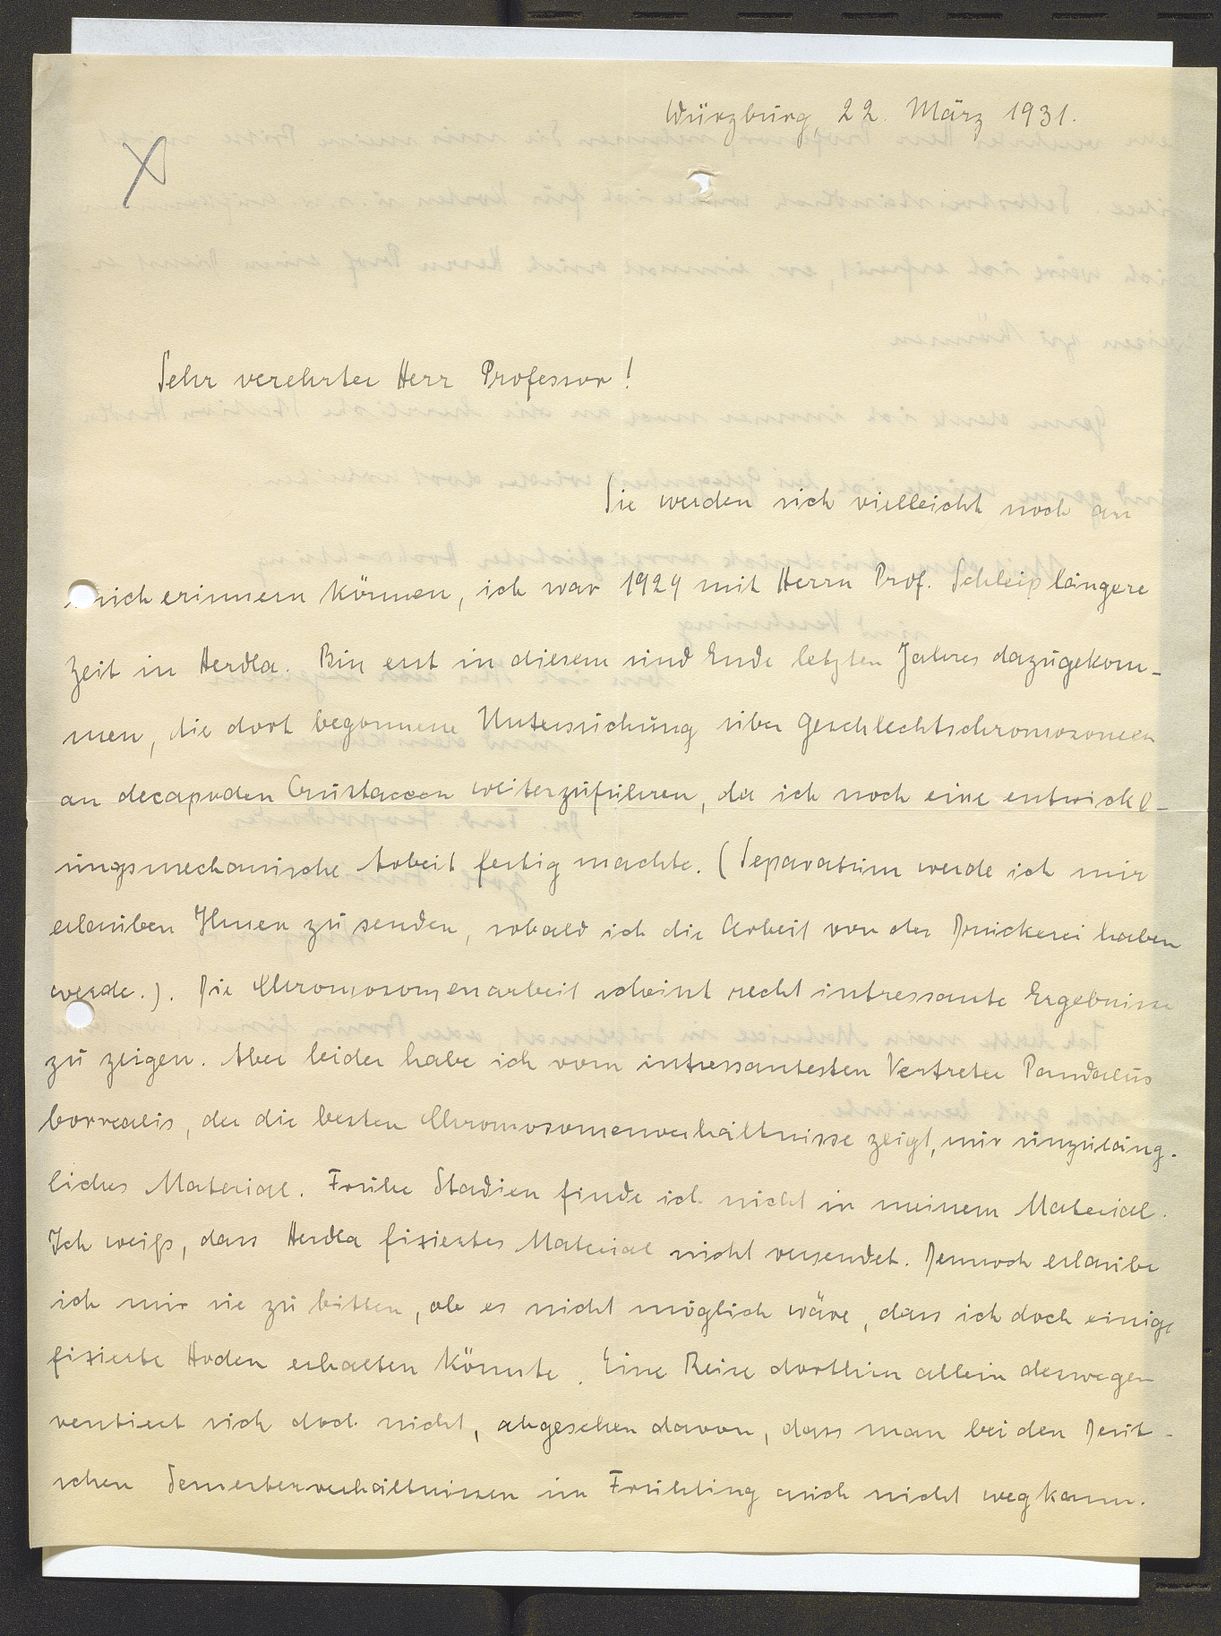 Würzburg, 22. März 1931.
Sehr verehrter Herr Professor!
Sie werden sich vielleicht noch an
mich erinnern können, ich war 1929 mit Herrn Prof. Schleip längere
Zeit in Herdla. Bin erst in diesem und Ende letzten Jahres dazugekom-
men, die dort begonnene Untersuchung über Geschlechtschromosomen
an decapoden Crustaceen weiterzuführen, da ich noch eine entwickl-
ungsmechanische Arbeit fertig machte. (Separatum werde ich mir
erlauben Ihnen zu senden, sobald ich die Arbeit von der Druckerei haben
werde.). Die Chromosomenarbeit scheint recht intressante Ergebnisse
zu zeigen. Aber leider habe ich vom intressantesten Vertreter Pandalus
borrealis, der die besten Chromosomenverhältnisse zeigt, nur unzuläng-
liches Material. Frühe Stadien finde ich nicht in meinem Material.
Ich weiß, dass Herdla fixiertes Material nicht versendet. Dennoch erlaube
ich mir sie zu bitten, ob es nicht möglich wäre, dass ich doch einige
fixierte Hoden erhalten könnte. Eine Reise dorthin allein deswegen
rentiert sich doch nicht, abgesehen davon, dass man bei den Deut-
schen Semesterverhältnissen im Frühling auch nicht weg kann.